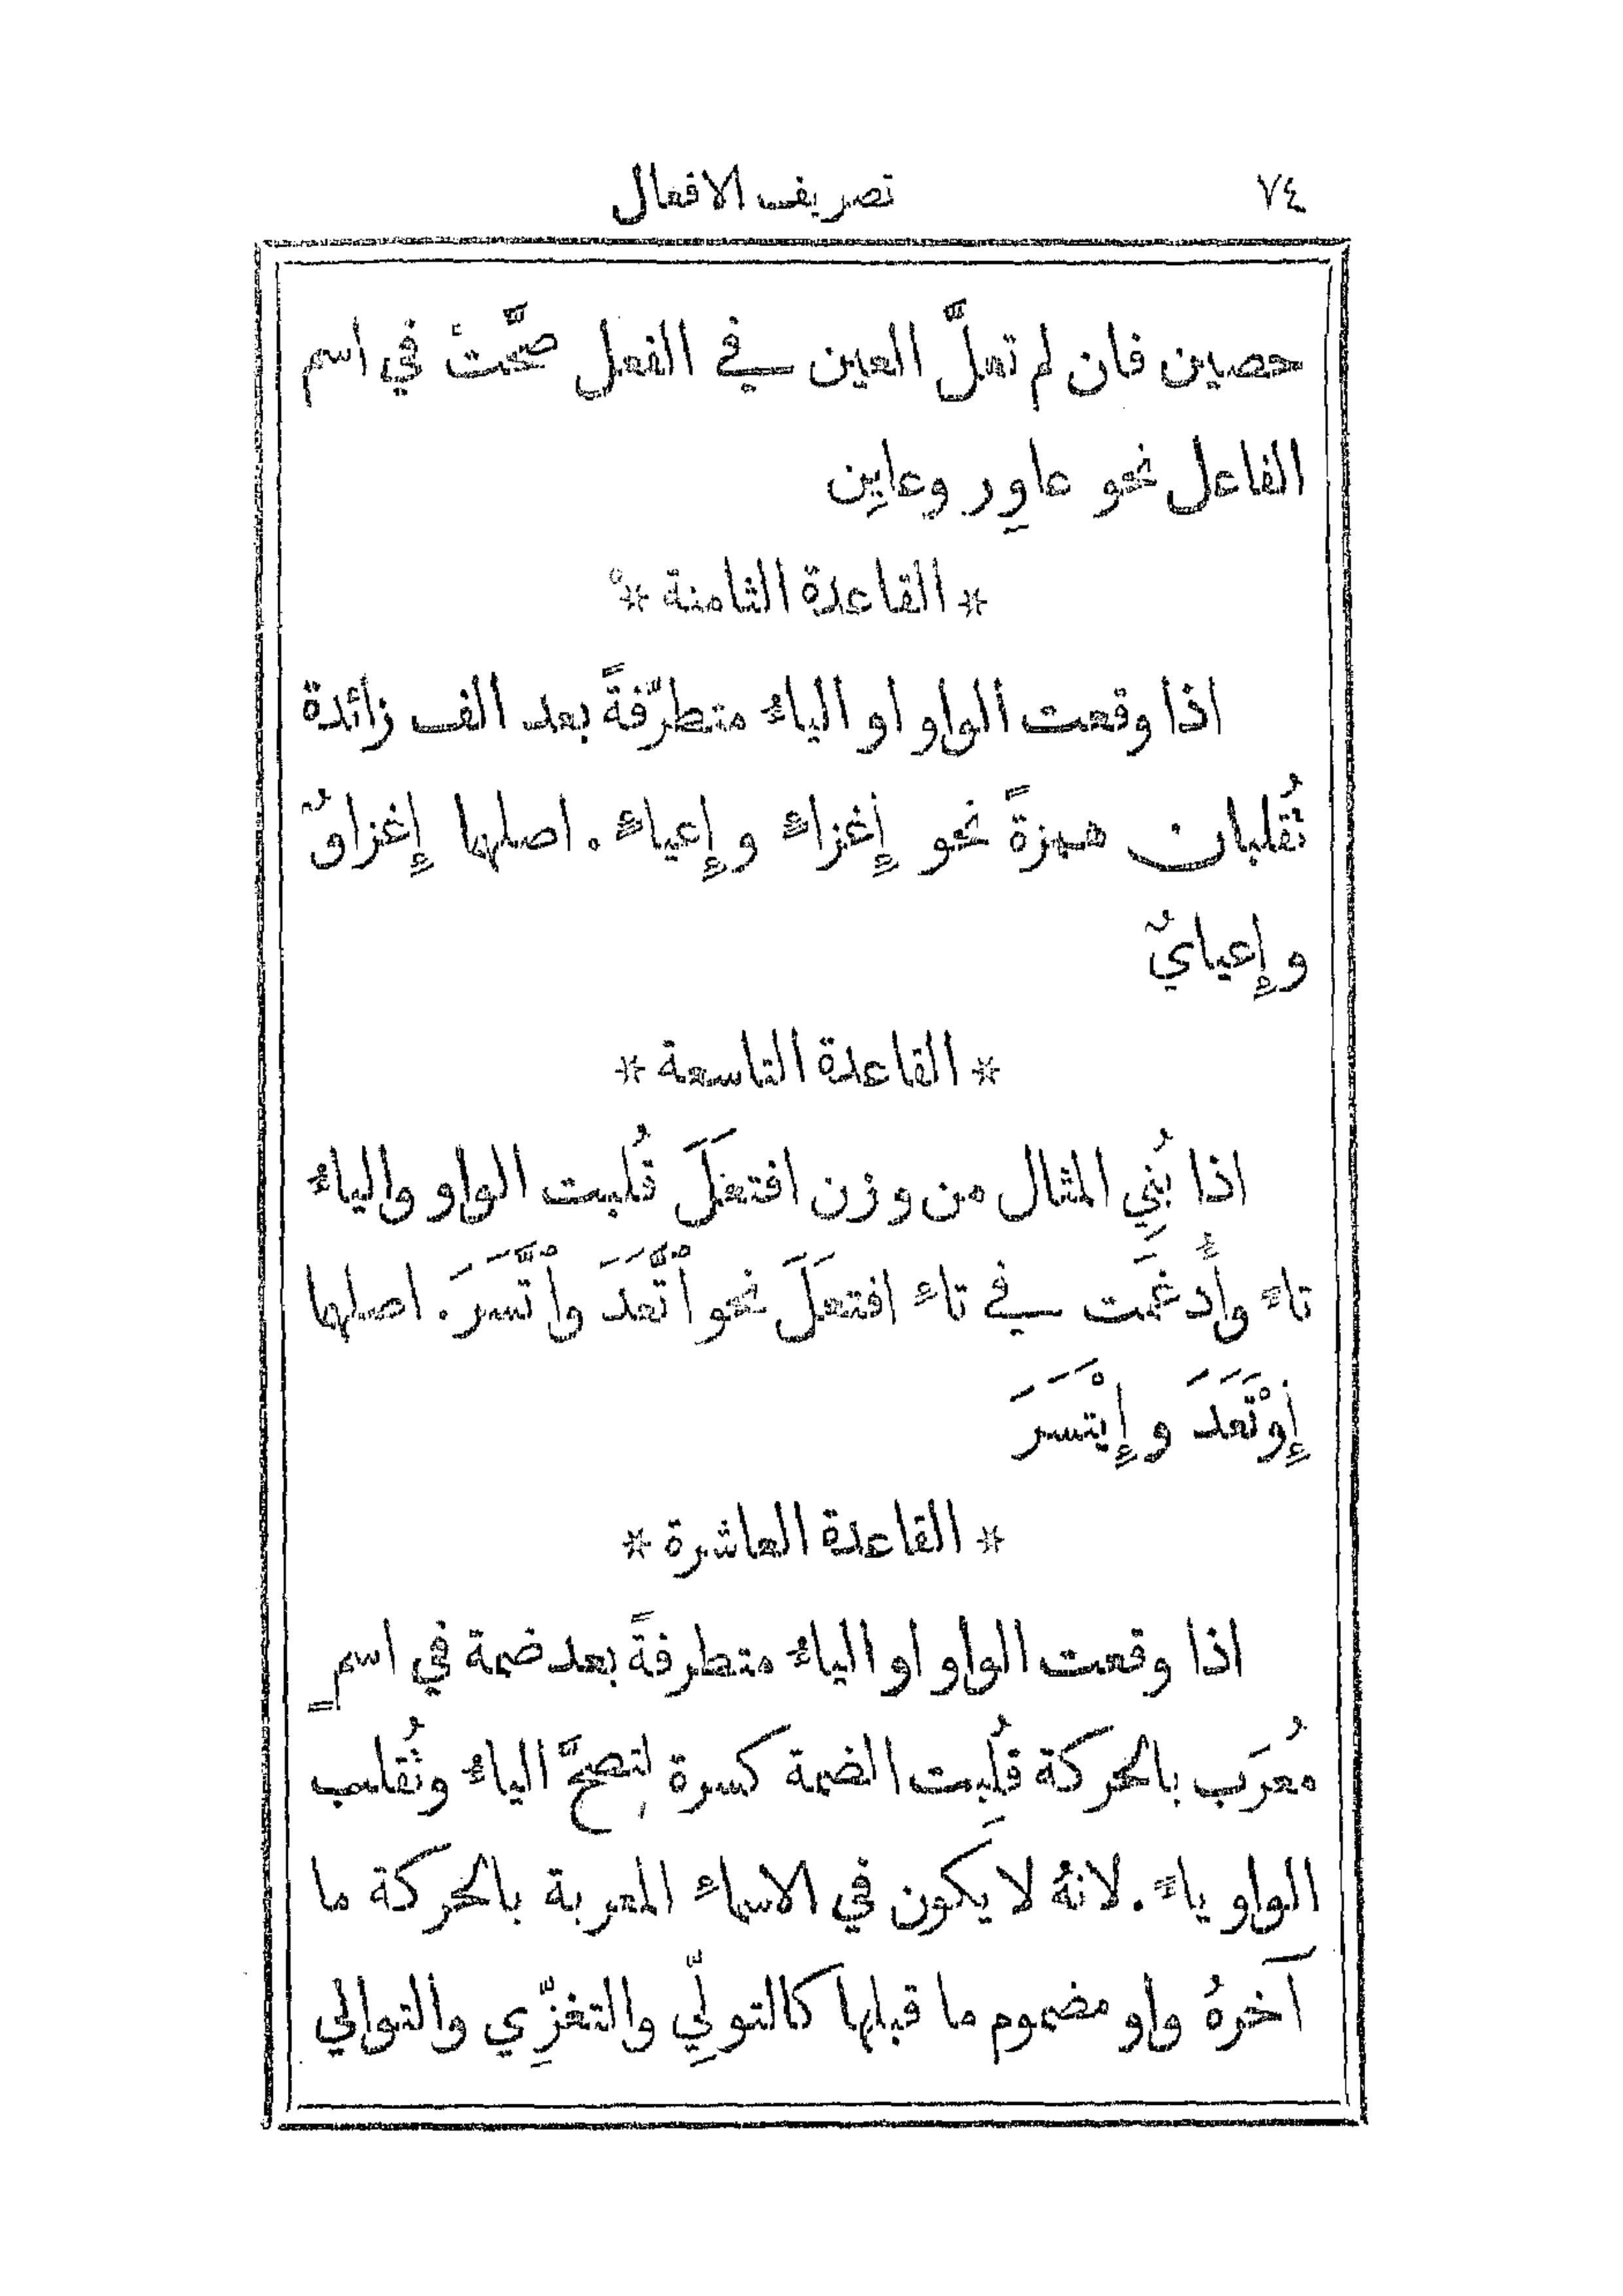 ٧٤ تصريف الافعال
حصين فان لم تعلَّ العين في الفعل صحَّت في اسم
الفاعل نحو عاوِر وعايِن
* القاعدة الثامنة *
اذا وقعت الواو او الياءُ متطرّفةً بعد الف زائدة
تُقلبان همزةً نحو إغزاءٌ وإعياءٌ. اصلهما إغزاوٌ
وإعيايٌ
* القاعدة التاسعة *
اذا بُنِي المثال من وزن افتعَلَ قُلبت الواو والياءُ
تاءً وأُدغَمت في تاء افتعَلَ نحو اتَّعَدَ واتَّسَرَ. اصلهما
إِوْتَعَدَ وإِيْتَسَرَ
* القاعدة العاشرة *
اذا وقعت الواو او الياءُ متطرفةً بعد ضمة في اسمٍ
مُعرَب بالحركة قُلِبت الضمة كسرة لتصحَّ الياءُ وتُقلب
الواو ياءً. لانهُ لا يكون في الاسماء المعربة بالحركة ما
آخرهُ واو مضموم ما قبلها كالتولِّي والتغزِّي والتوالي